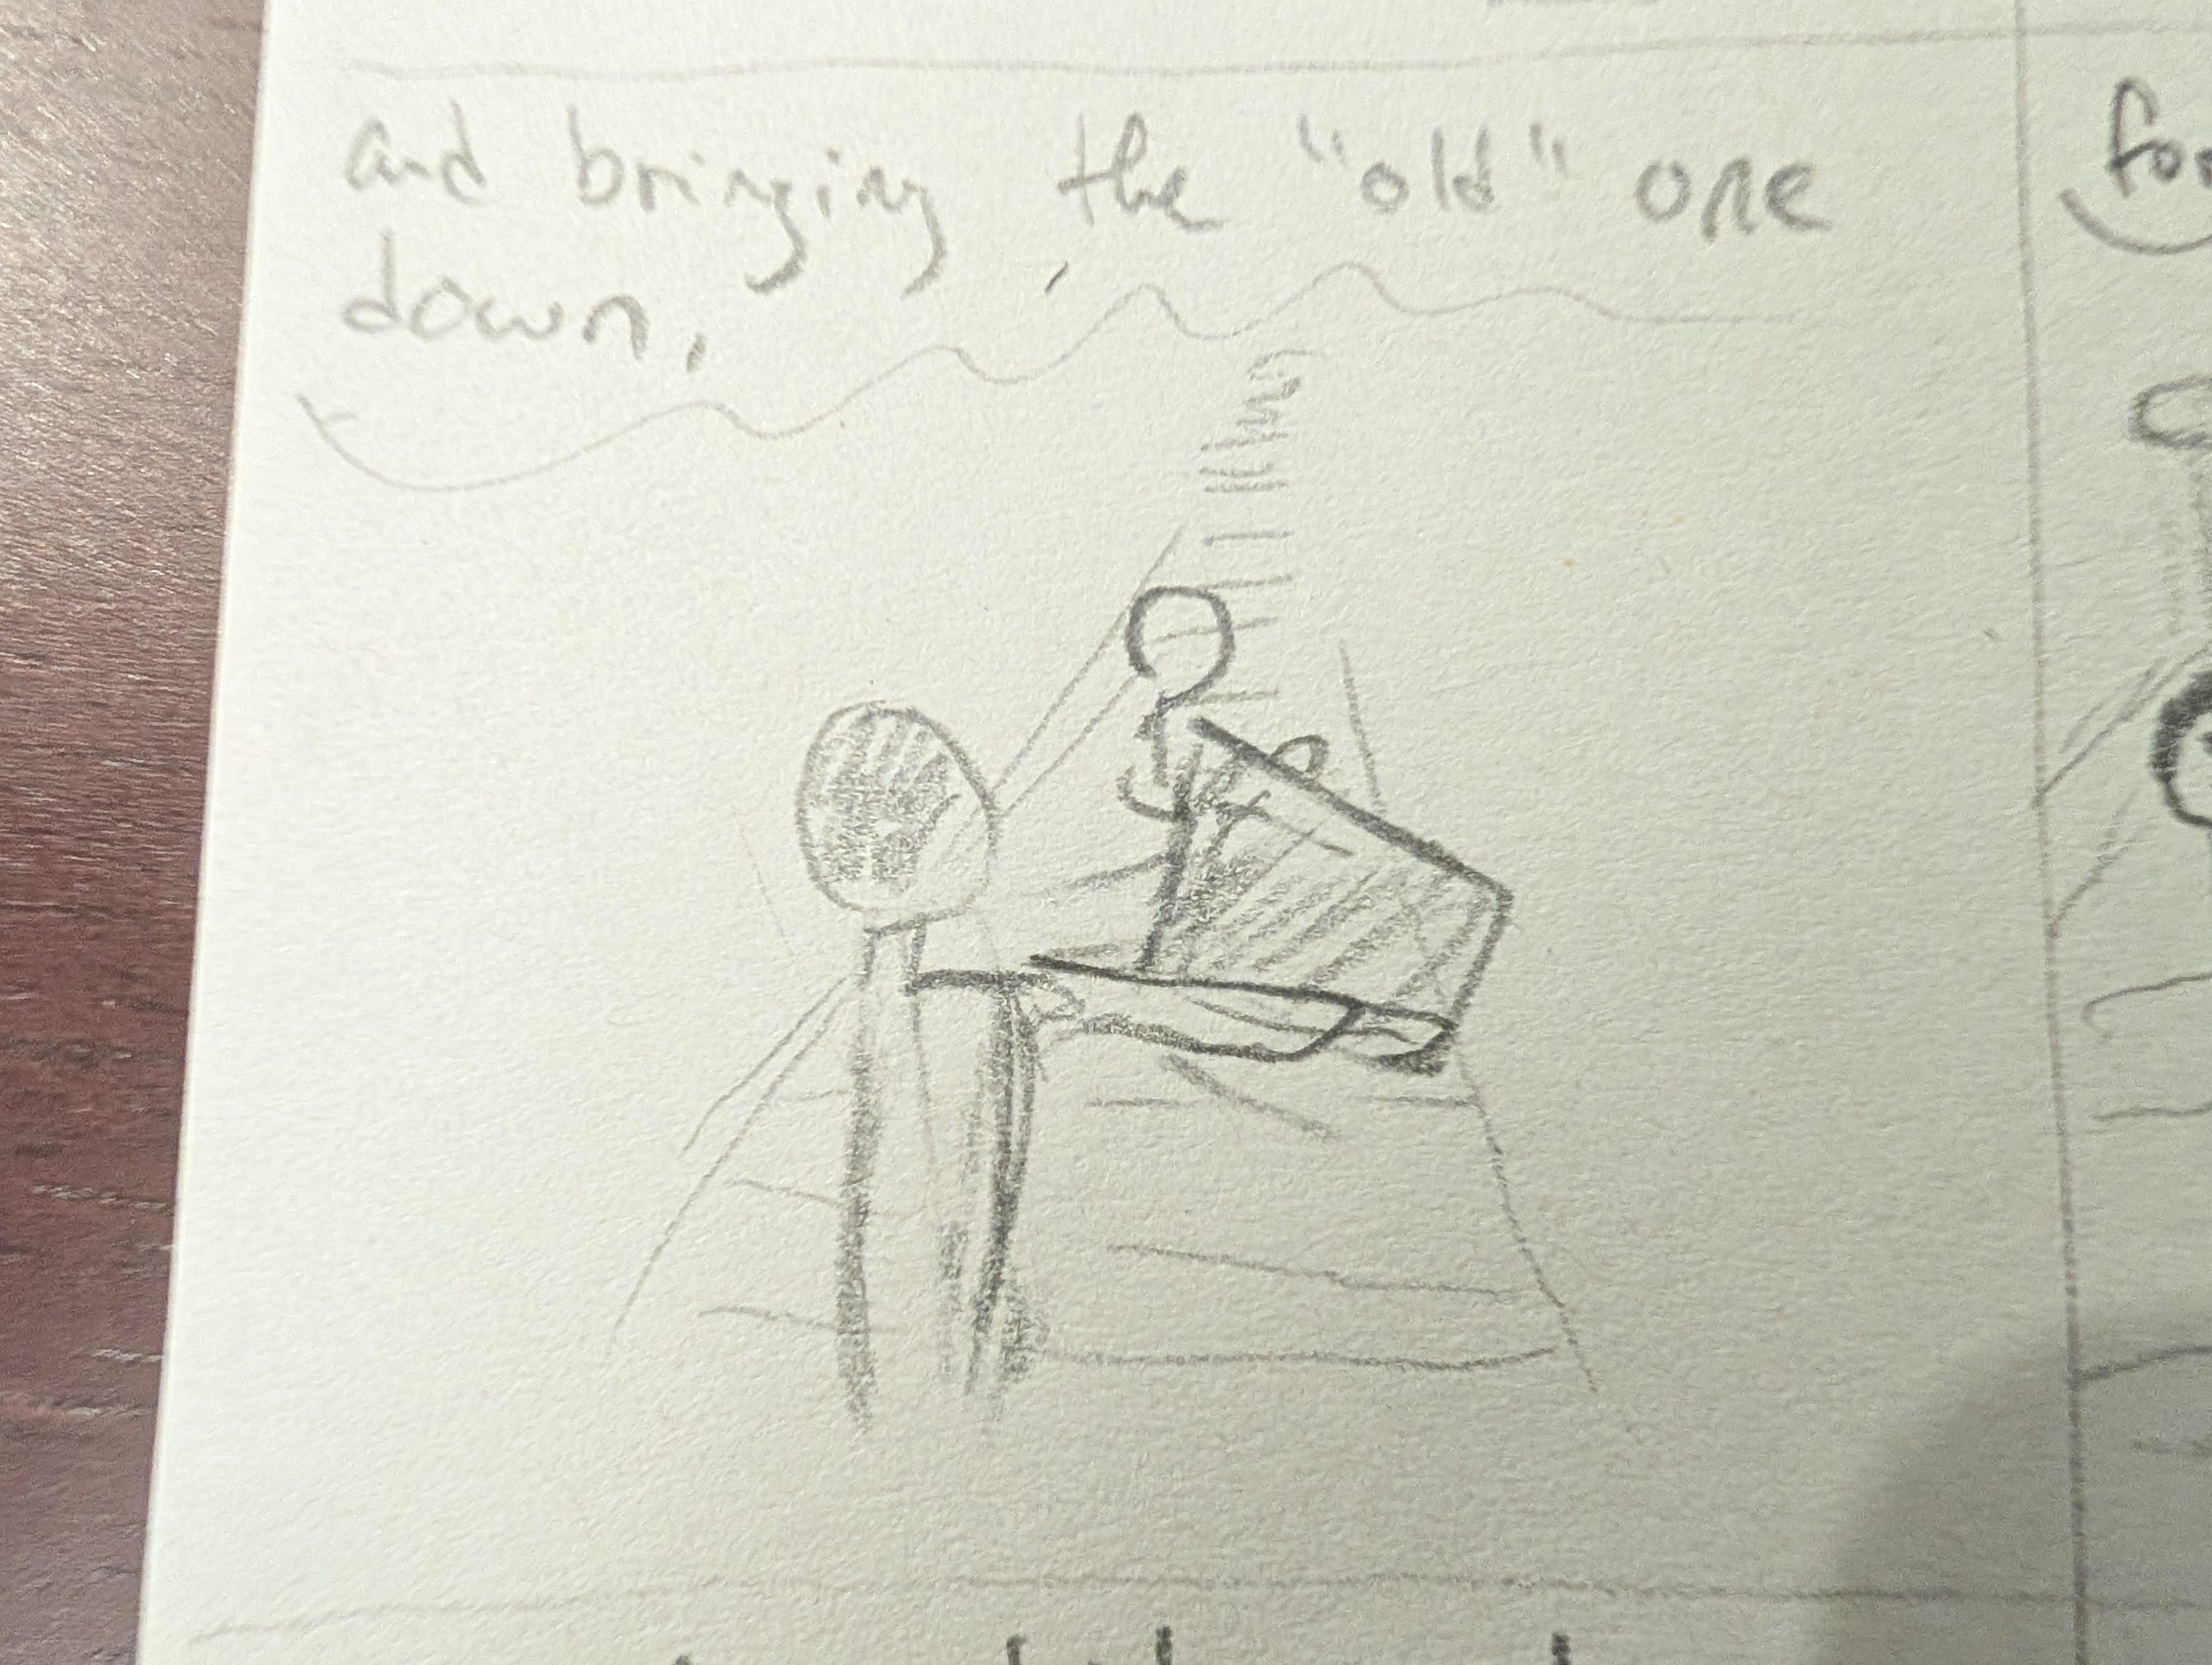 and bringing the "old" one
down,